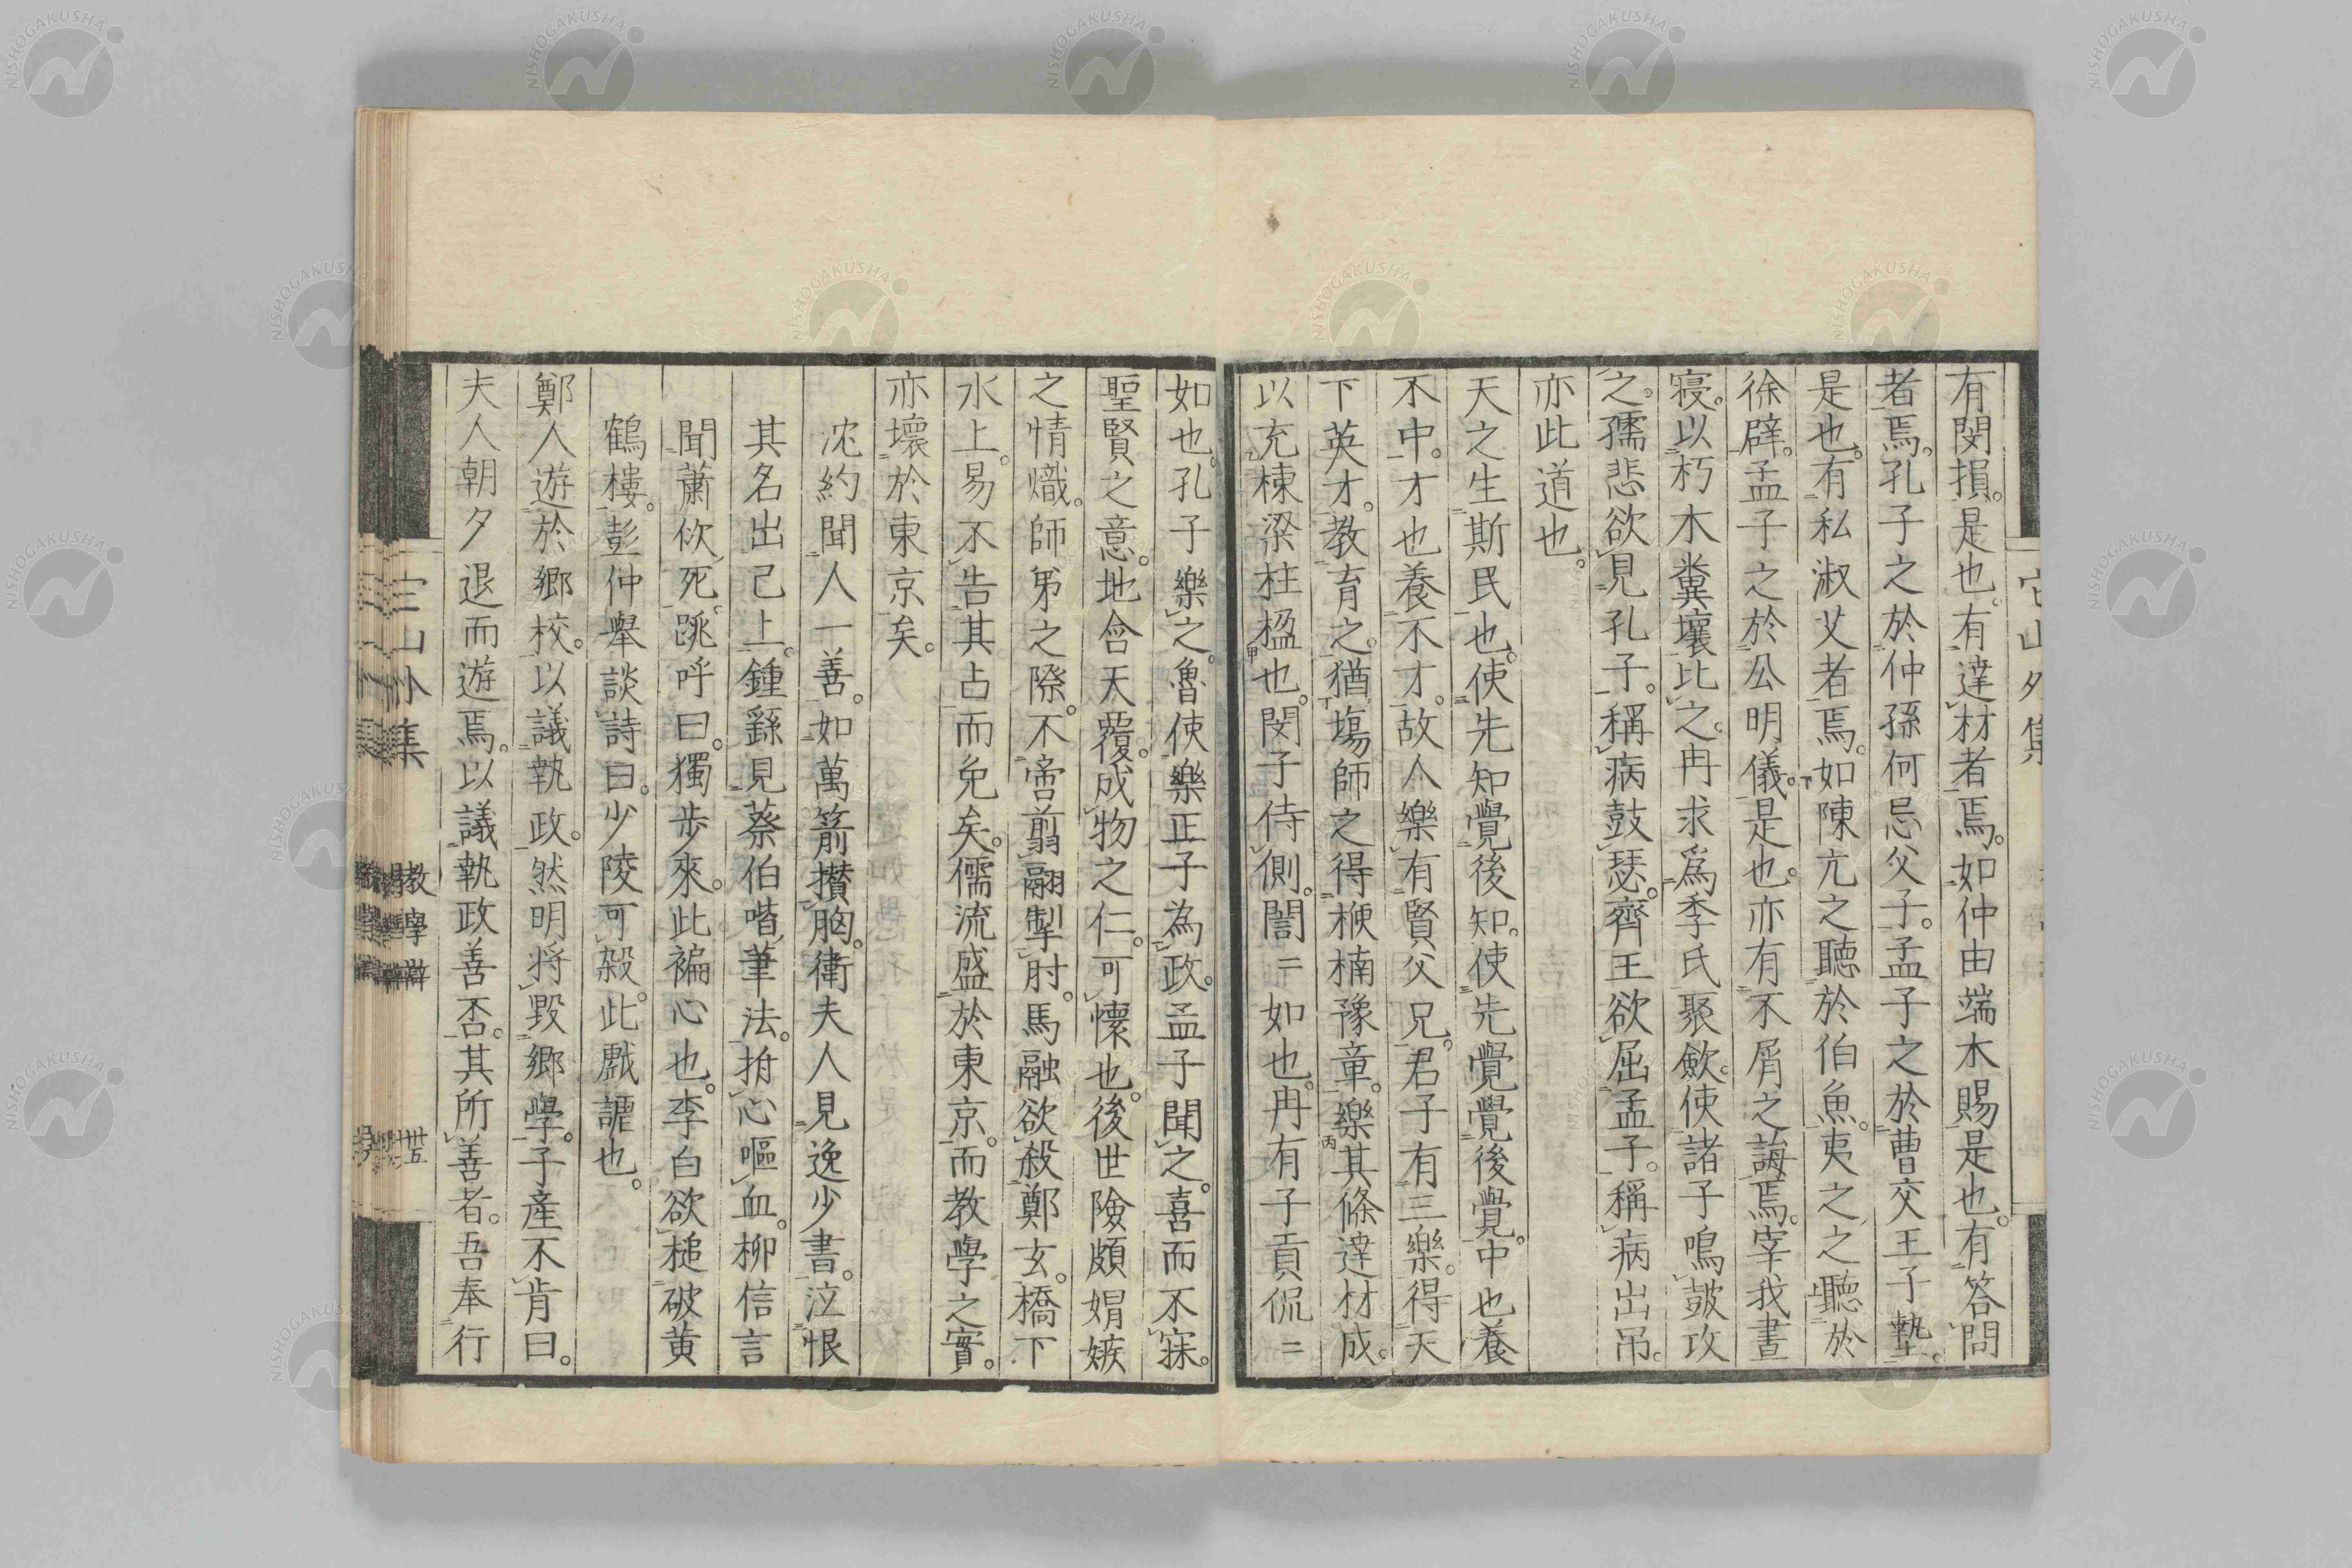 有閔損。是也。有達材者焉。如仲由端木賜是也。有答問
者焉。孔子之於仲孫何忌父子。孟子之於曹交王子墊。
是也。有私淑艾者焉。如陳亢之聽於伯魚。夷之之聽於
徐辟。孟子之於公明儀。是也。亦有不屑之誨焉。宰我晝
寝。以朽木糞壤比之。冉求為季氏聚斂。使諸子鳴鼓攻
之。孺悲欲見孔子。稱病鼓瑟。齊王欲屈孟子。稱病出吊。
亦此道也。
天之生斯民也。使先知覺後知。使先覺覺後覺。中也養
不中。才也養不才。故人樂有賢父兄。君子有三樂。得天
下英才。教育之。猶場師之得梗楠豫章。樂其條達材成。
以充棟梁柱楹也。閔子侍側。誾〻如也。冉有子貢侃〻
如也。孔子樂之。魯使樂正子為政。孟子聞之。喜而不寐。
聖賢之意。地含天覆。成物之仁。可懷也。後世險頗娟嫉
之情熾。師弟之際。不啻翦翮掣肘。馬融欲殺鄭玄。橋下
水上。易不告其占而免矣。儒流盛於東京。而教學之實。
亦壞於東京矣。
沈約聞人一善。如萬箭攅胸。衛夫人見逸少書。泣恨
其名出己上。鍾繇見蔡伯喈筆法。拊心嘔血。柳信言
聞蕭佽死。跳呼曰。獨步來。此褊心也。李白欲槌破黄
鶴樓。彭仲舉談詩曰。少陵可殺。此戲謔也。
鄭人遊於郷校。以議執政。然明将毀郷學。子産不肯曰。
夫人朝夕退而遊焉。以議執政善否。其所善者。吾奉行
宅山外集
教學
卅五